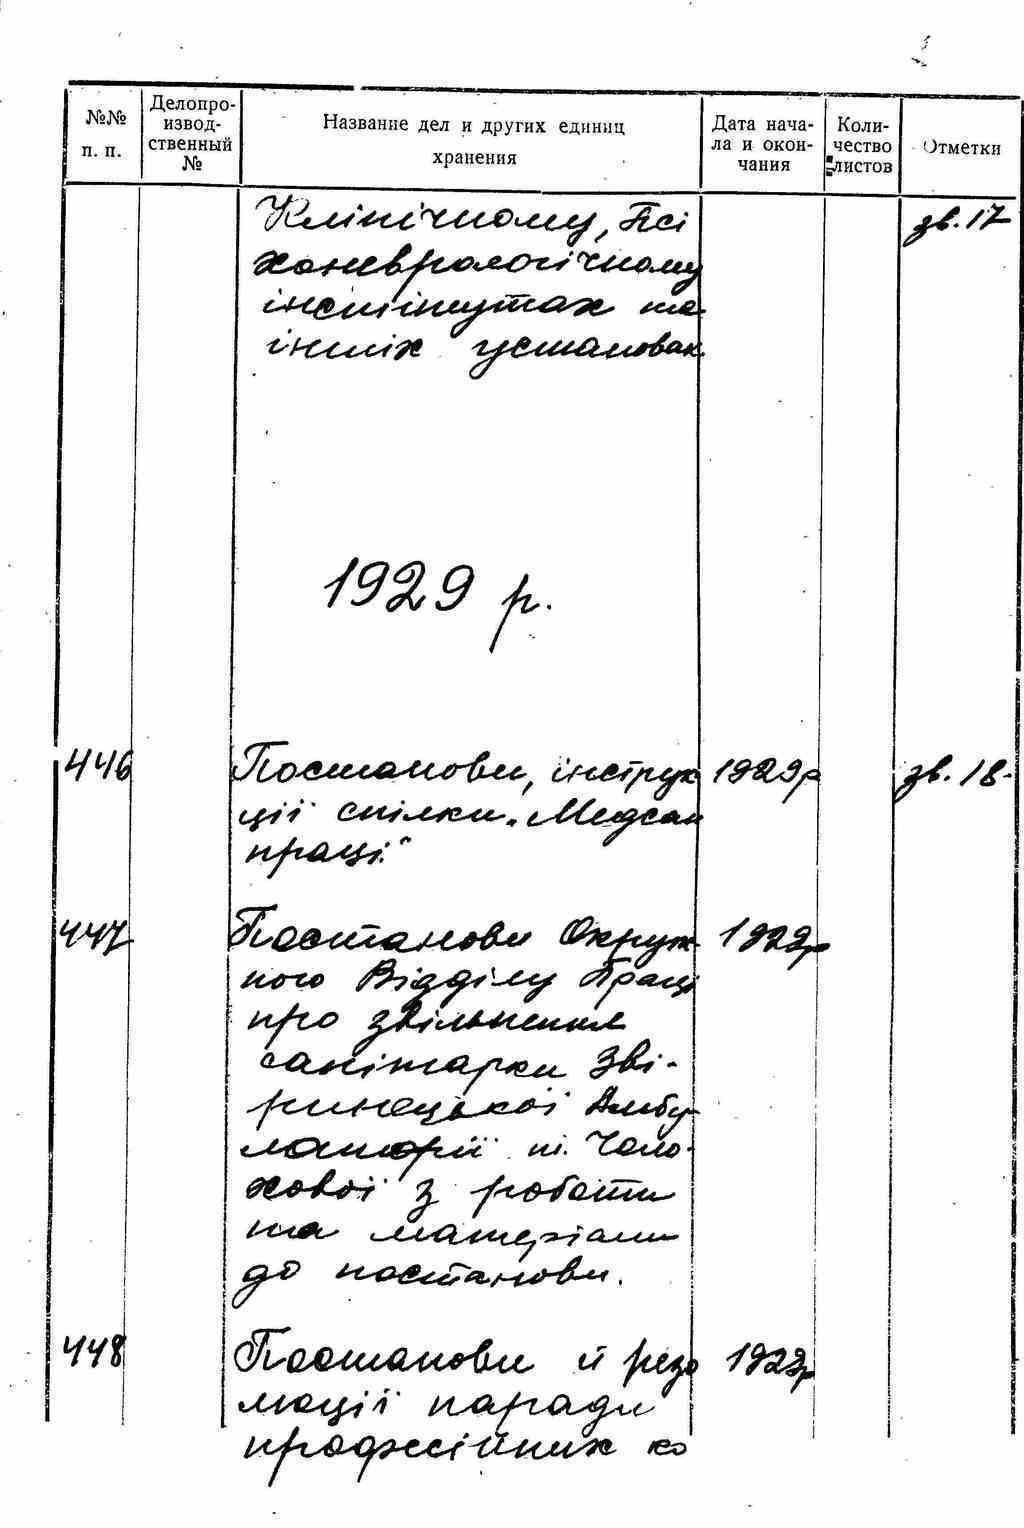 №№ п. п.
Делопро-
извод-
ственный
№
Название дел и других единиц
хранения
Дата нача-
ла и окон-
чания
Коли-
чество
листов
Отметки
Клінічному, Псі
хоневрологічному
інститутах та
інших установах
зв. 17
1929 р.
446 Постанови, інструк 1929р зв. 18
ції спілки „Медсан
праці"
447 Постанови Окруж 1929р
ного Відділу Праці
про звільнення
санітарки Зві-
ринецької Амбу
латорії т. Чоло-
хової з роботи
та матеріали
до постанови.
448 Постанови й резо 1929р
люції наради
професійних ко